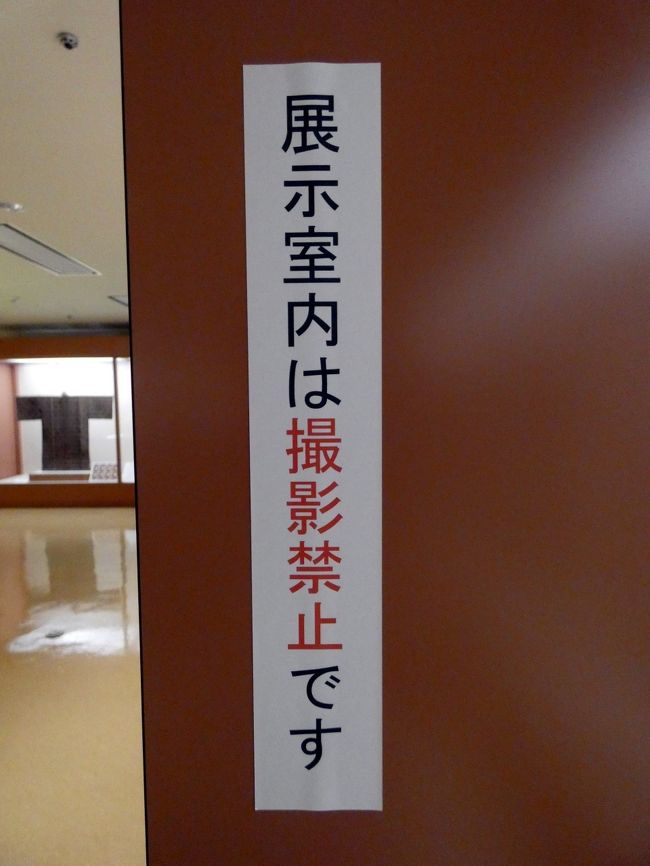 展示室内は撮影禁止です